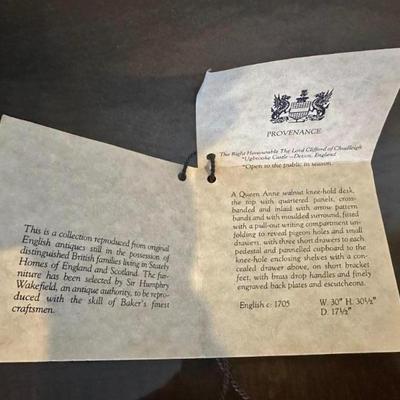 PROVENANCE
The Right Honourable The Lord Clifford of Chudleigh
*Ugbrooke Castle—Devon, England
*Open to the public in season.
A Queen Anne walnut knee-hold desk,
the top with quartered panels, cross-
banded and inlaid with arrow pattern
bands and with moulded surround, fitted
with a pull-out writing compartment un-
folding to reveal pigeon holes and small
drawers, with three short drawers to each
pedestal and pannelled cupboard to the
knee-hole enclosing shelves with a con-
cealed drawer above, on short bracket
feet, with brass drop handles and finely
engraved back plates and escutcheons.
English c. 1705 W. 30" H. 30½"
D. 17½"
This is a collection reproduced from original
English antiques still in the possession of
distinguished British families living in Stately
Homes of England and Scotland. The fur-
niture has been selected by Sir Humphry
Wakefield, an antique authority, to be repro-
duced with the skill of Baker's finest
craftsmen.